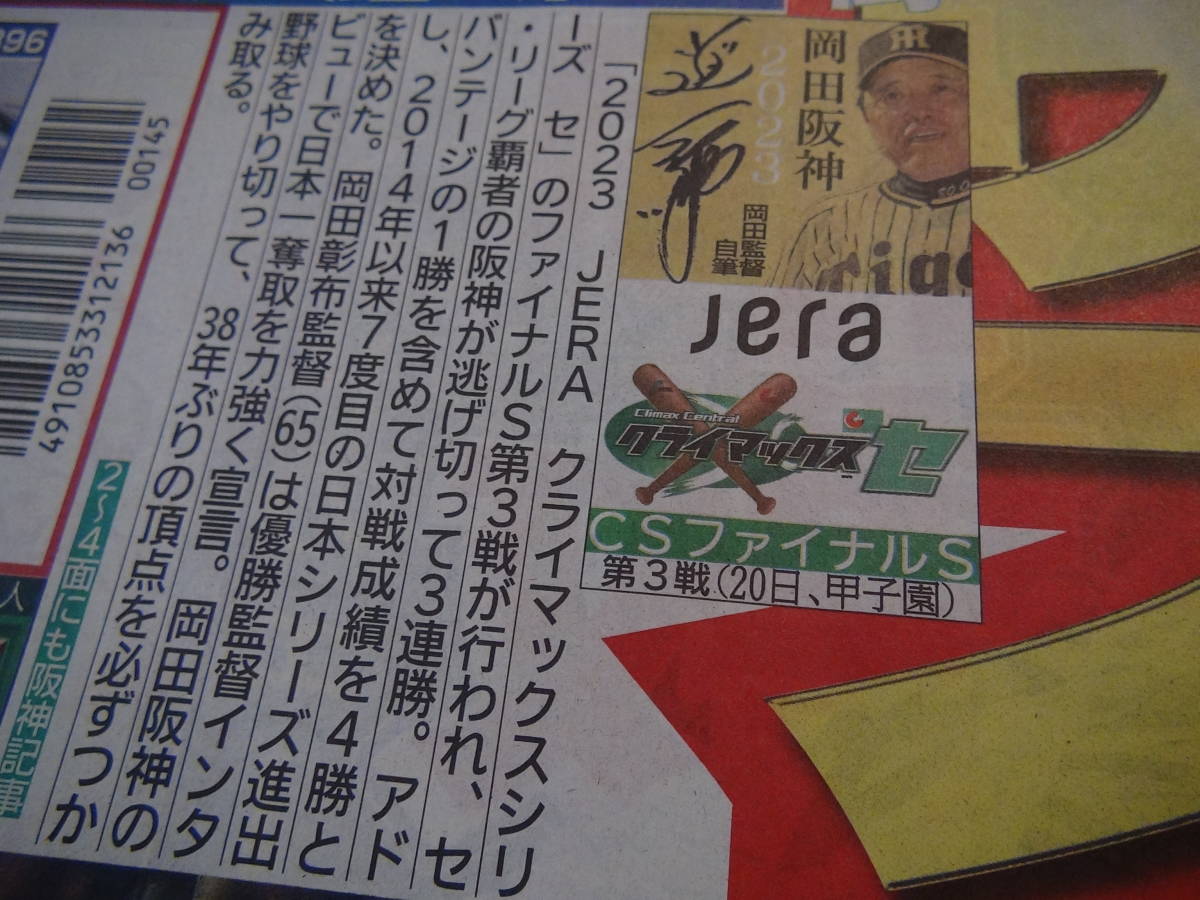 岡田阪神
2023
岡田監督
自筆
Jera
Climax Central
クライマックス セ
CSファイナルS
第3戦(20日、甲子園)
「2023 JERA クライマックスシリ
ーズ セ」のファイナルS第3戦が行われ、セ
・リーグ覇者の阪神が逃げ切って3連勝。アド
バンテージの1勝を含めて対戦成績を4勝と
し、2014年以来7度目の日本シリーズ進出
を決めた。岡田彰布監督(65)は優勝監督インタ
ビューで日本一奪取を力強く宣言。岡田阪神の
野球をやり切って、38年ぶりの頂点を必ずつか
み取る。
2〜4面にも阪神記事
4910853312136
00145